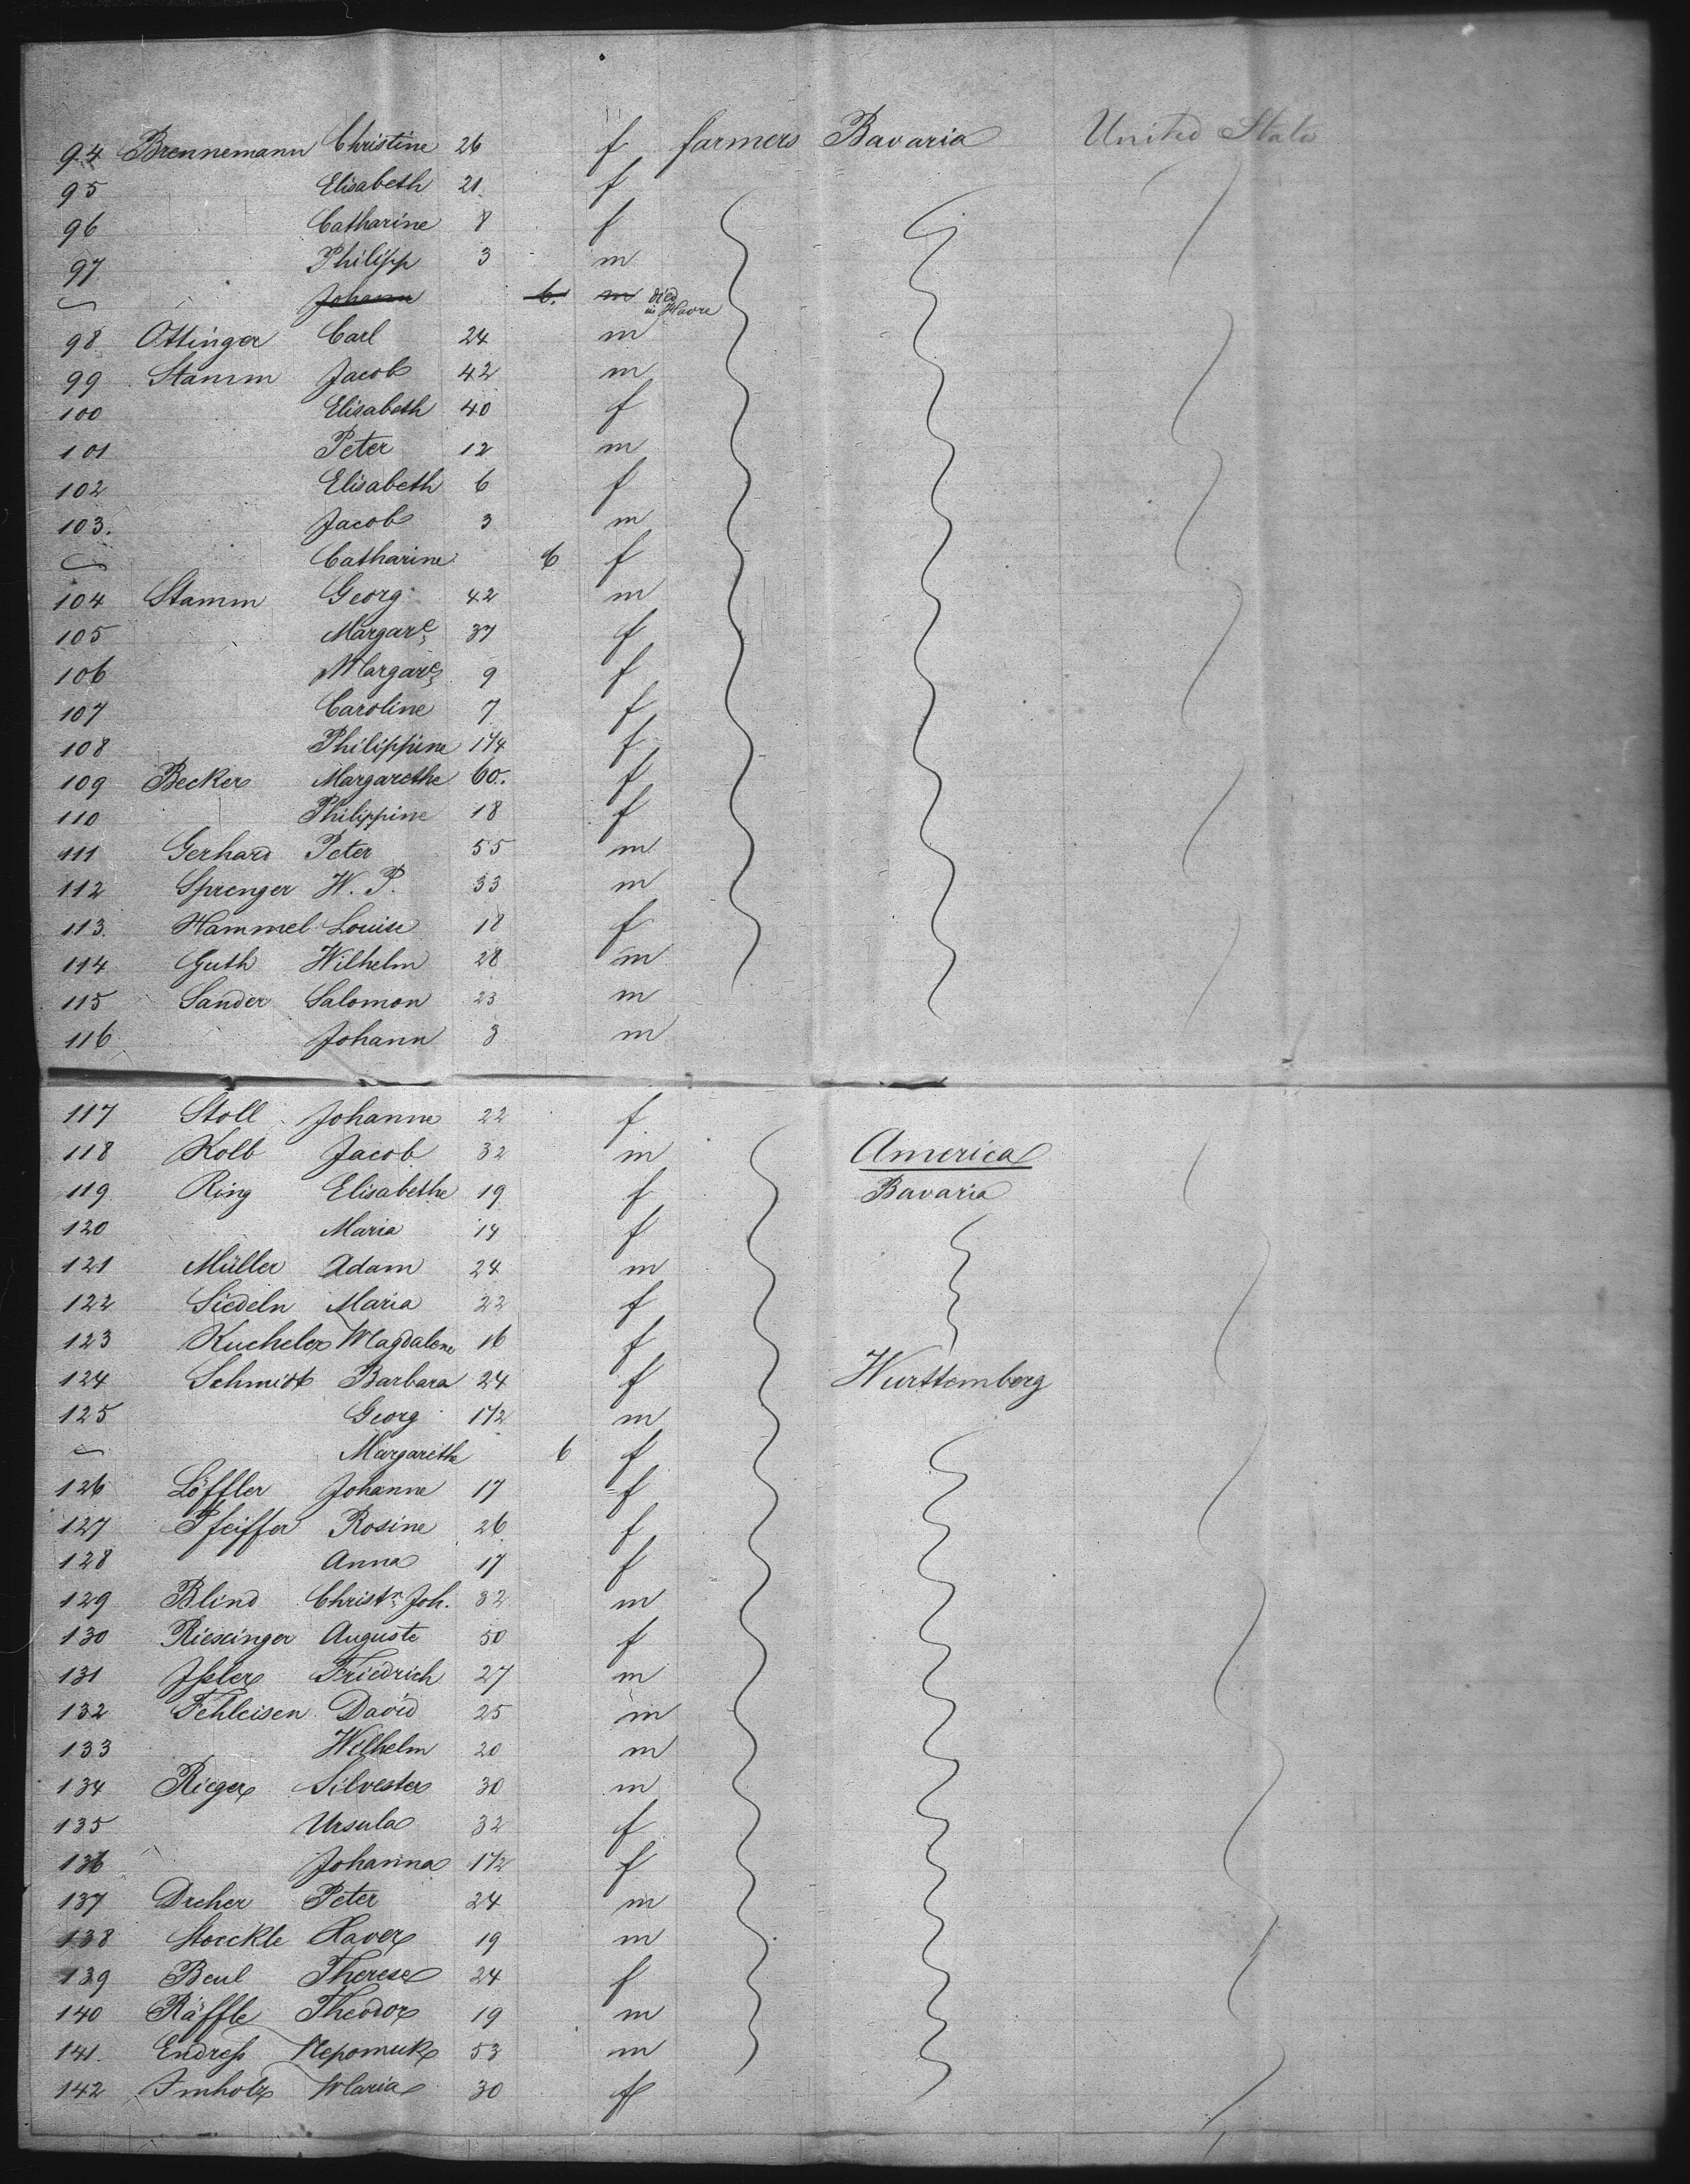 94 Brennemann Christine 26 f farmers Bavaria United States
95 Elisabeth 21 f
96 Catharine 8 f
97 Philipp 3 m
Johann 6. m died in Havre
98 Ottinger Carl 24 m
99 Stamm Jacob 42 m
100 Elisabeth 40 f
101 Peter 12 m
102 Elisabeth 6 f
103. Jacob 3 m
Catharine 6 f
104 Stamm Georg 42 m
105 Margare 37 f
106 Margare 9 f
107 Caroline 7 f
108 Philippine 1 1/4 f
109 Becker Margarethe 60. f
110 Philippine 18 f
111 Gerhard Peter 55 m
112 Sprenger W. P. 33 m
113. Hammel Louise 18 f
114 Guth Wilhelm 28 m
115 Sander Salomon 23 m
116 Johann 3 m
117 Stoll Johanne 22 f
118 Kolb Jacob 32 m America
119 Ring Elisabethe 19 f Bavaria
120 Maria 14 f
121 Müller Adam 24 m
122 Siedeln Maria 22 f
123 Kucheler Magdalene 16 f
124 Schmidt Barbara 24 f Wurttemberg
125 Georg 1 1/2 m
Margarethe 6 f
126 Löffler Johanne 17 f
127 Pfeiffer Rosine 26 f
128 Anna 17 f
129 Blind Christn Joh. 32 m
130 Riexinger Auguste 50 f
131 Issler Friedrich 27 m
132 Fehleisen David 25 m
133 Wilhelm 20 m
134 Rieger Silvester 30 m
135 Ursula 32 f
136 Johanna 1 1/2 f
137 Dreher Peter 24 m
138 Stoeckle Xaver 19 m
139 Beul Therese 24 f
140 Räffle Theodor 19 m
141. Endress Nepomuk 53 m
142 Imholz Maria 30 f